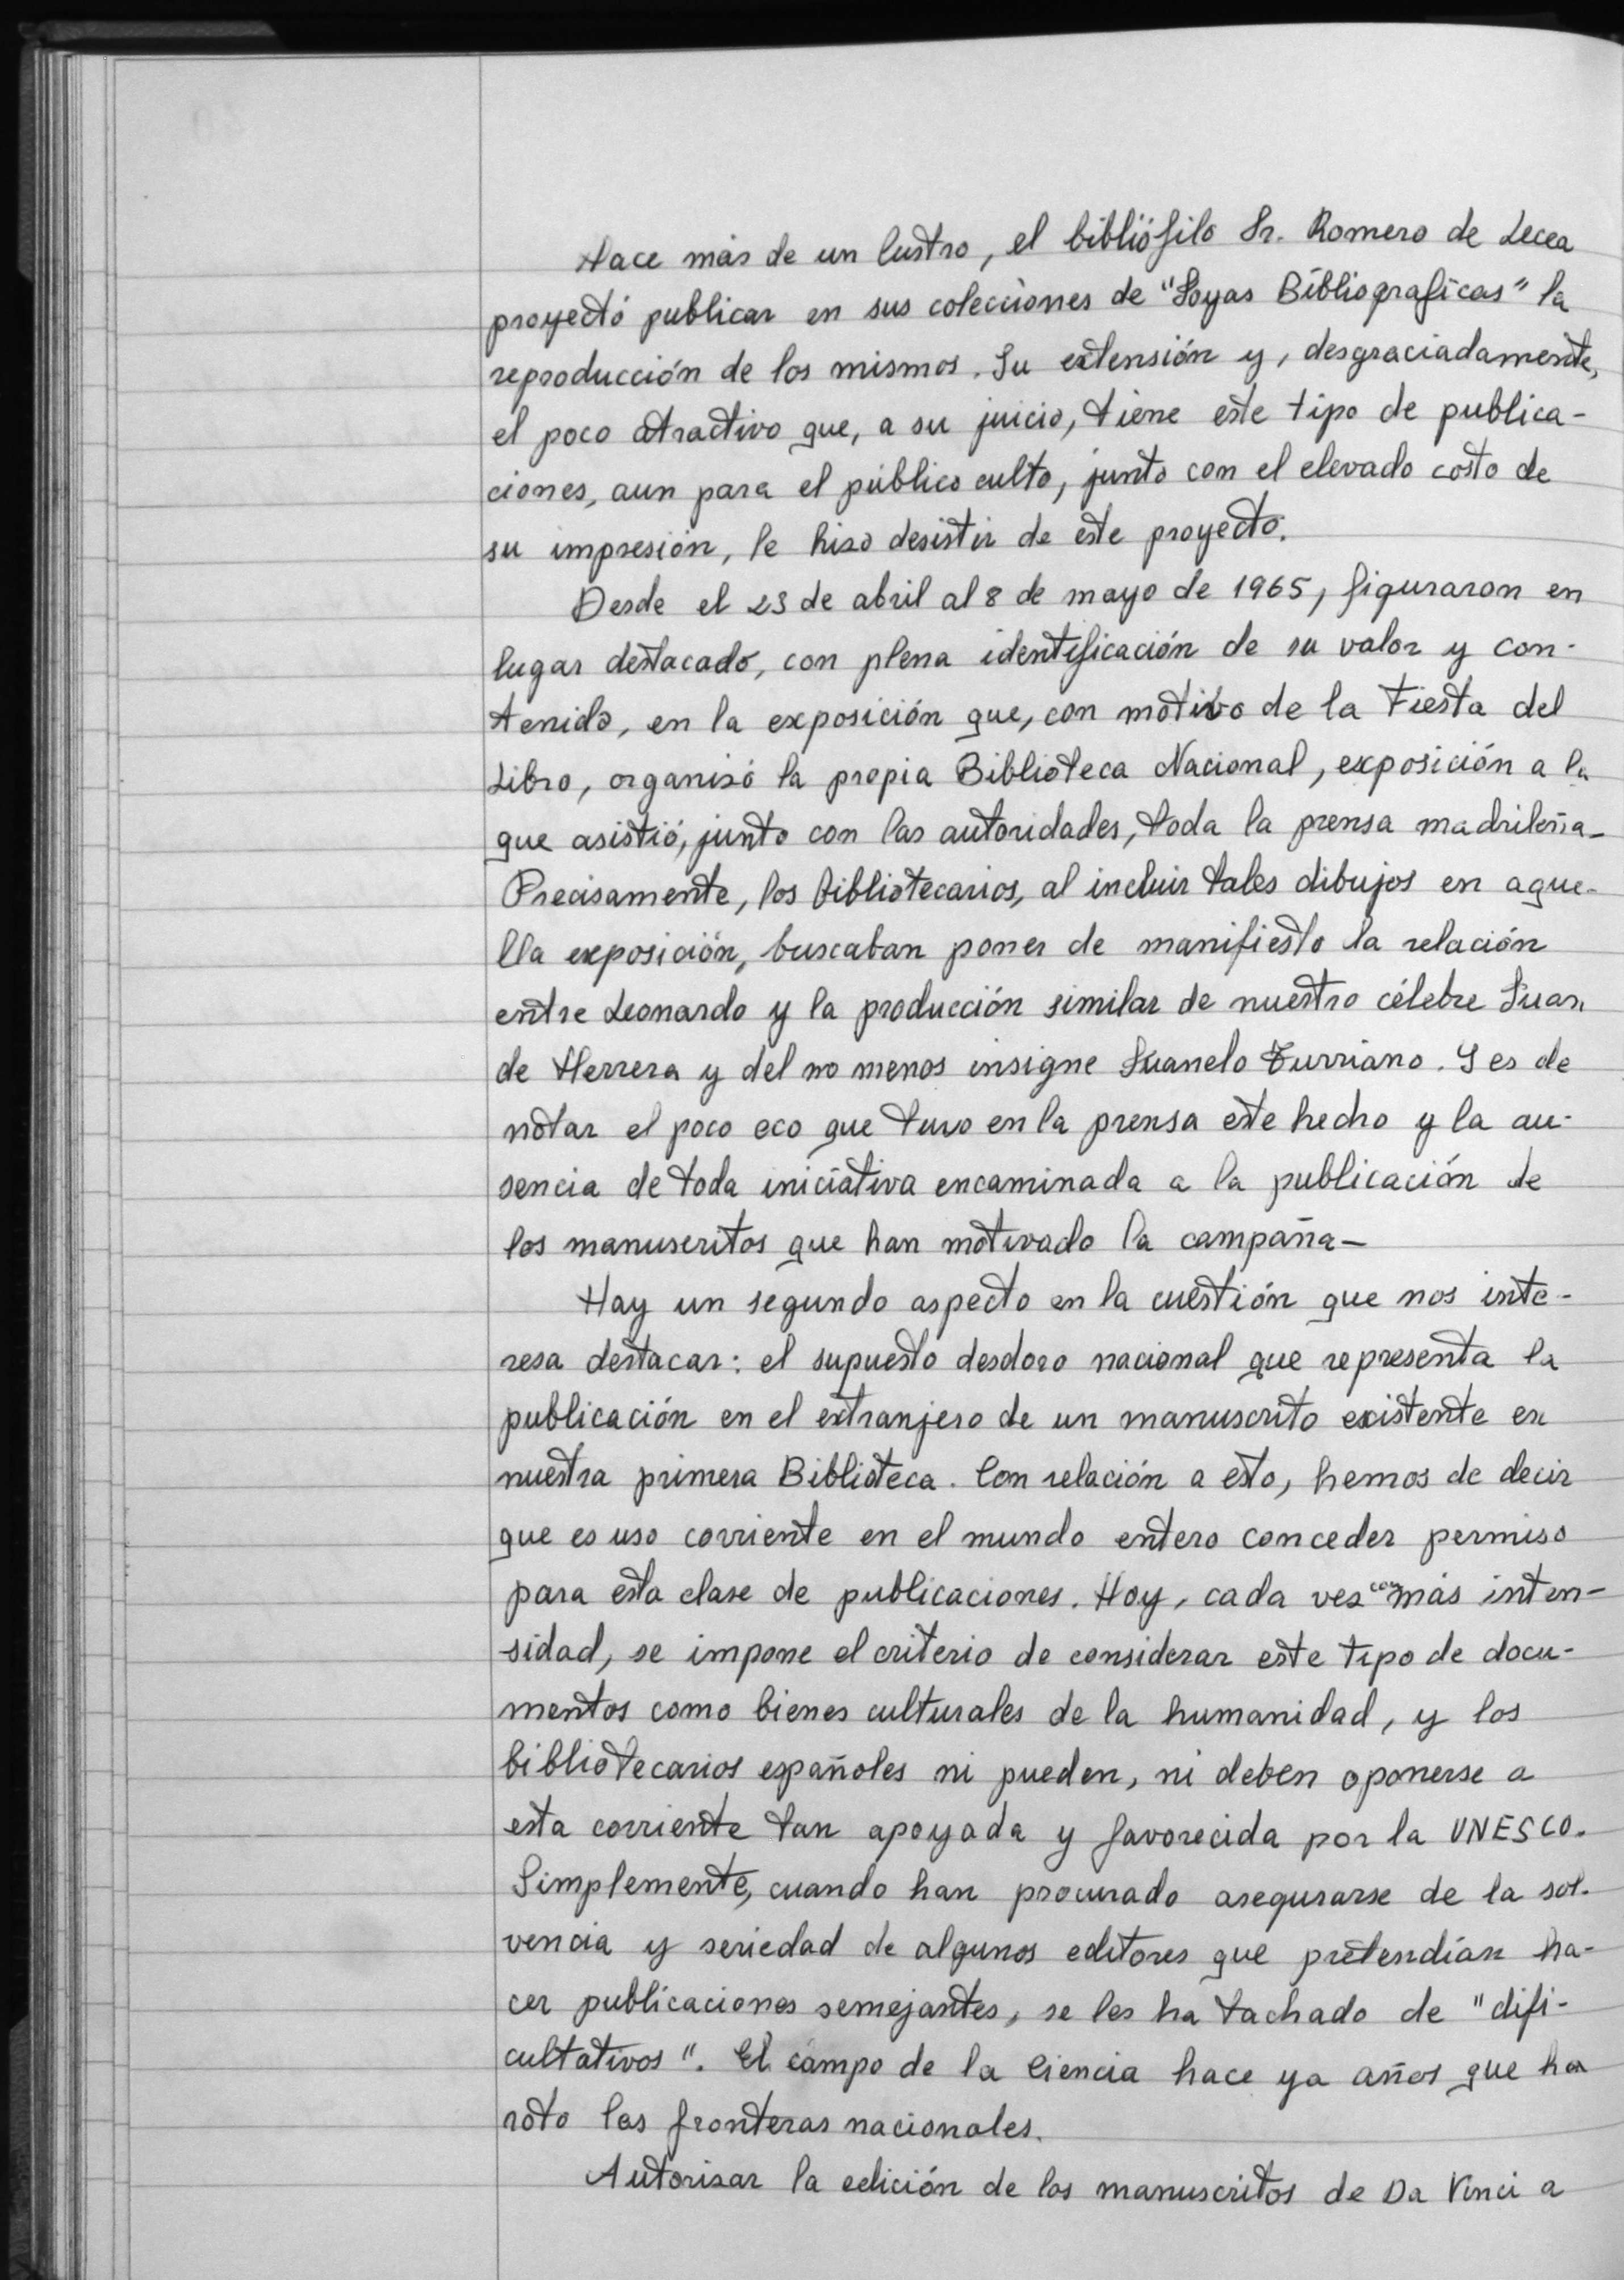 Hace más de un lustro, el bibliófilo Sr. Romero de Lecea
proyectó publicar en sus colecciones de "Joyas Bibliograficas" la
reproducción de los mismos. Su extensión y, desgraciadamente,
el poco atractivo que, a su juicio, tiene este tipo de publica-
ciones, aun para el público culto, junto con el elevado costo de
su impresión, le hizo desistir de este proyecto.
Desde el 23 de abril al 8 de mayo de 1965, figuraron en
lugar destacado, con plena identificación de su valor y con-
tenido, en la exposición que, con motivo de la Fiesta del
Libro, organizó la propia Biblioteca Nacional, exposición a la
que asistió, junto con las autoridades, toda la prensa madrileña_
Precisamente, los bibliotecarios, al incluir tales dibujos en aque-
lla exposición, buscaban poner de manifiesto la relación
entre Leonardo y la producción similar de nuestro célebre Juan
de Herrera y del no menos insigne Juanelo Turriano. Y es de
notar el poco eco que tuvo en la prensa este hecho y la au-
sencia de toda iniciativa encaminada a la publicación de
los manuscritos que han motivado la campaña_
Hay un segundo aspecto en la cuestión que nos inte-
resa destacar: el supuesto desdoro nacional que representa la
publicación en el extranjero de un manuscrito existente en
nuestra primera Biblioteca. Con relación a esto, hemos de decir
que es uso corriente en el mundo entero conceder permiso
para esta clase de publicaciones. Hoy, cada vez con más inten-
sidad, se impone el criterio de considerar este tipo de docu-
mentos como bienes culturales de la humanidad, y los
bibliotecarios españoles ni pueden, ni deben oponerse a
esta corriente tan apoyada y favorecida por la UNESCO.
Simplemente, cuando han procurado asegurarse de la sol-
vencia y seriedad de algunos editores que pretendían ha-
cer publicaciones semejantes, se les ha tachado de "difi-
cultativos". El campo de la Ciencia hace ya años que ha
roto las fronteras nacionales.
Autorizar la edición de los manuscritos de Da Vinci a